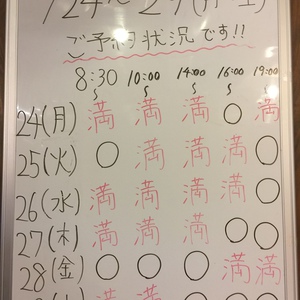 /24〜29(月-土)
ご予約状況です!!
8:30〜 10:00〜 14:00〜 16:00〜 19:00〜
24(月) 満 満 満 ○ 満
25(火) ○ 満 満 満 ○
26(水) 満 満 満 満 ○
27(木) 満 満 満 ○ ○
28(金) ○ ○ ○ 満 満